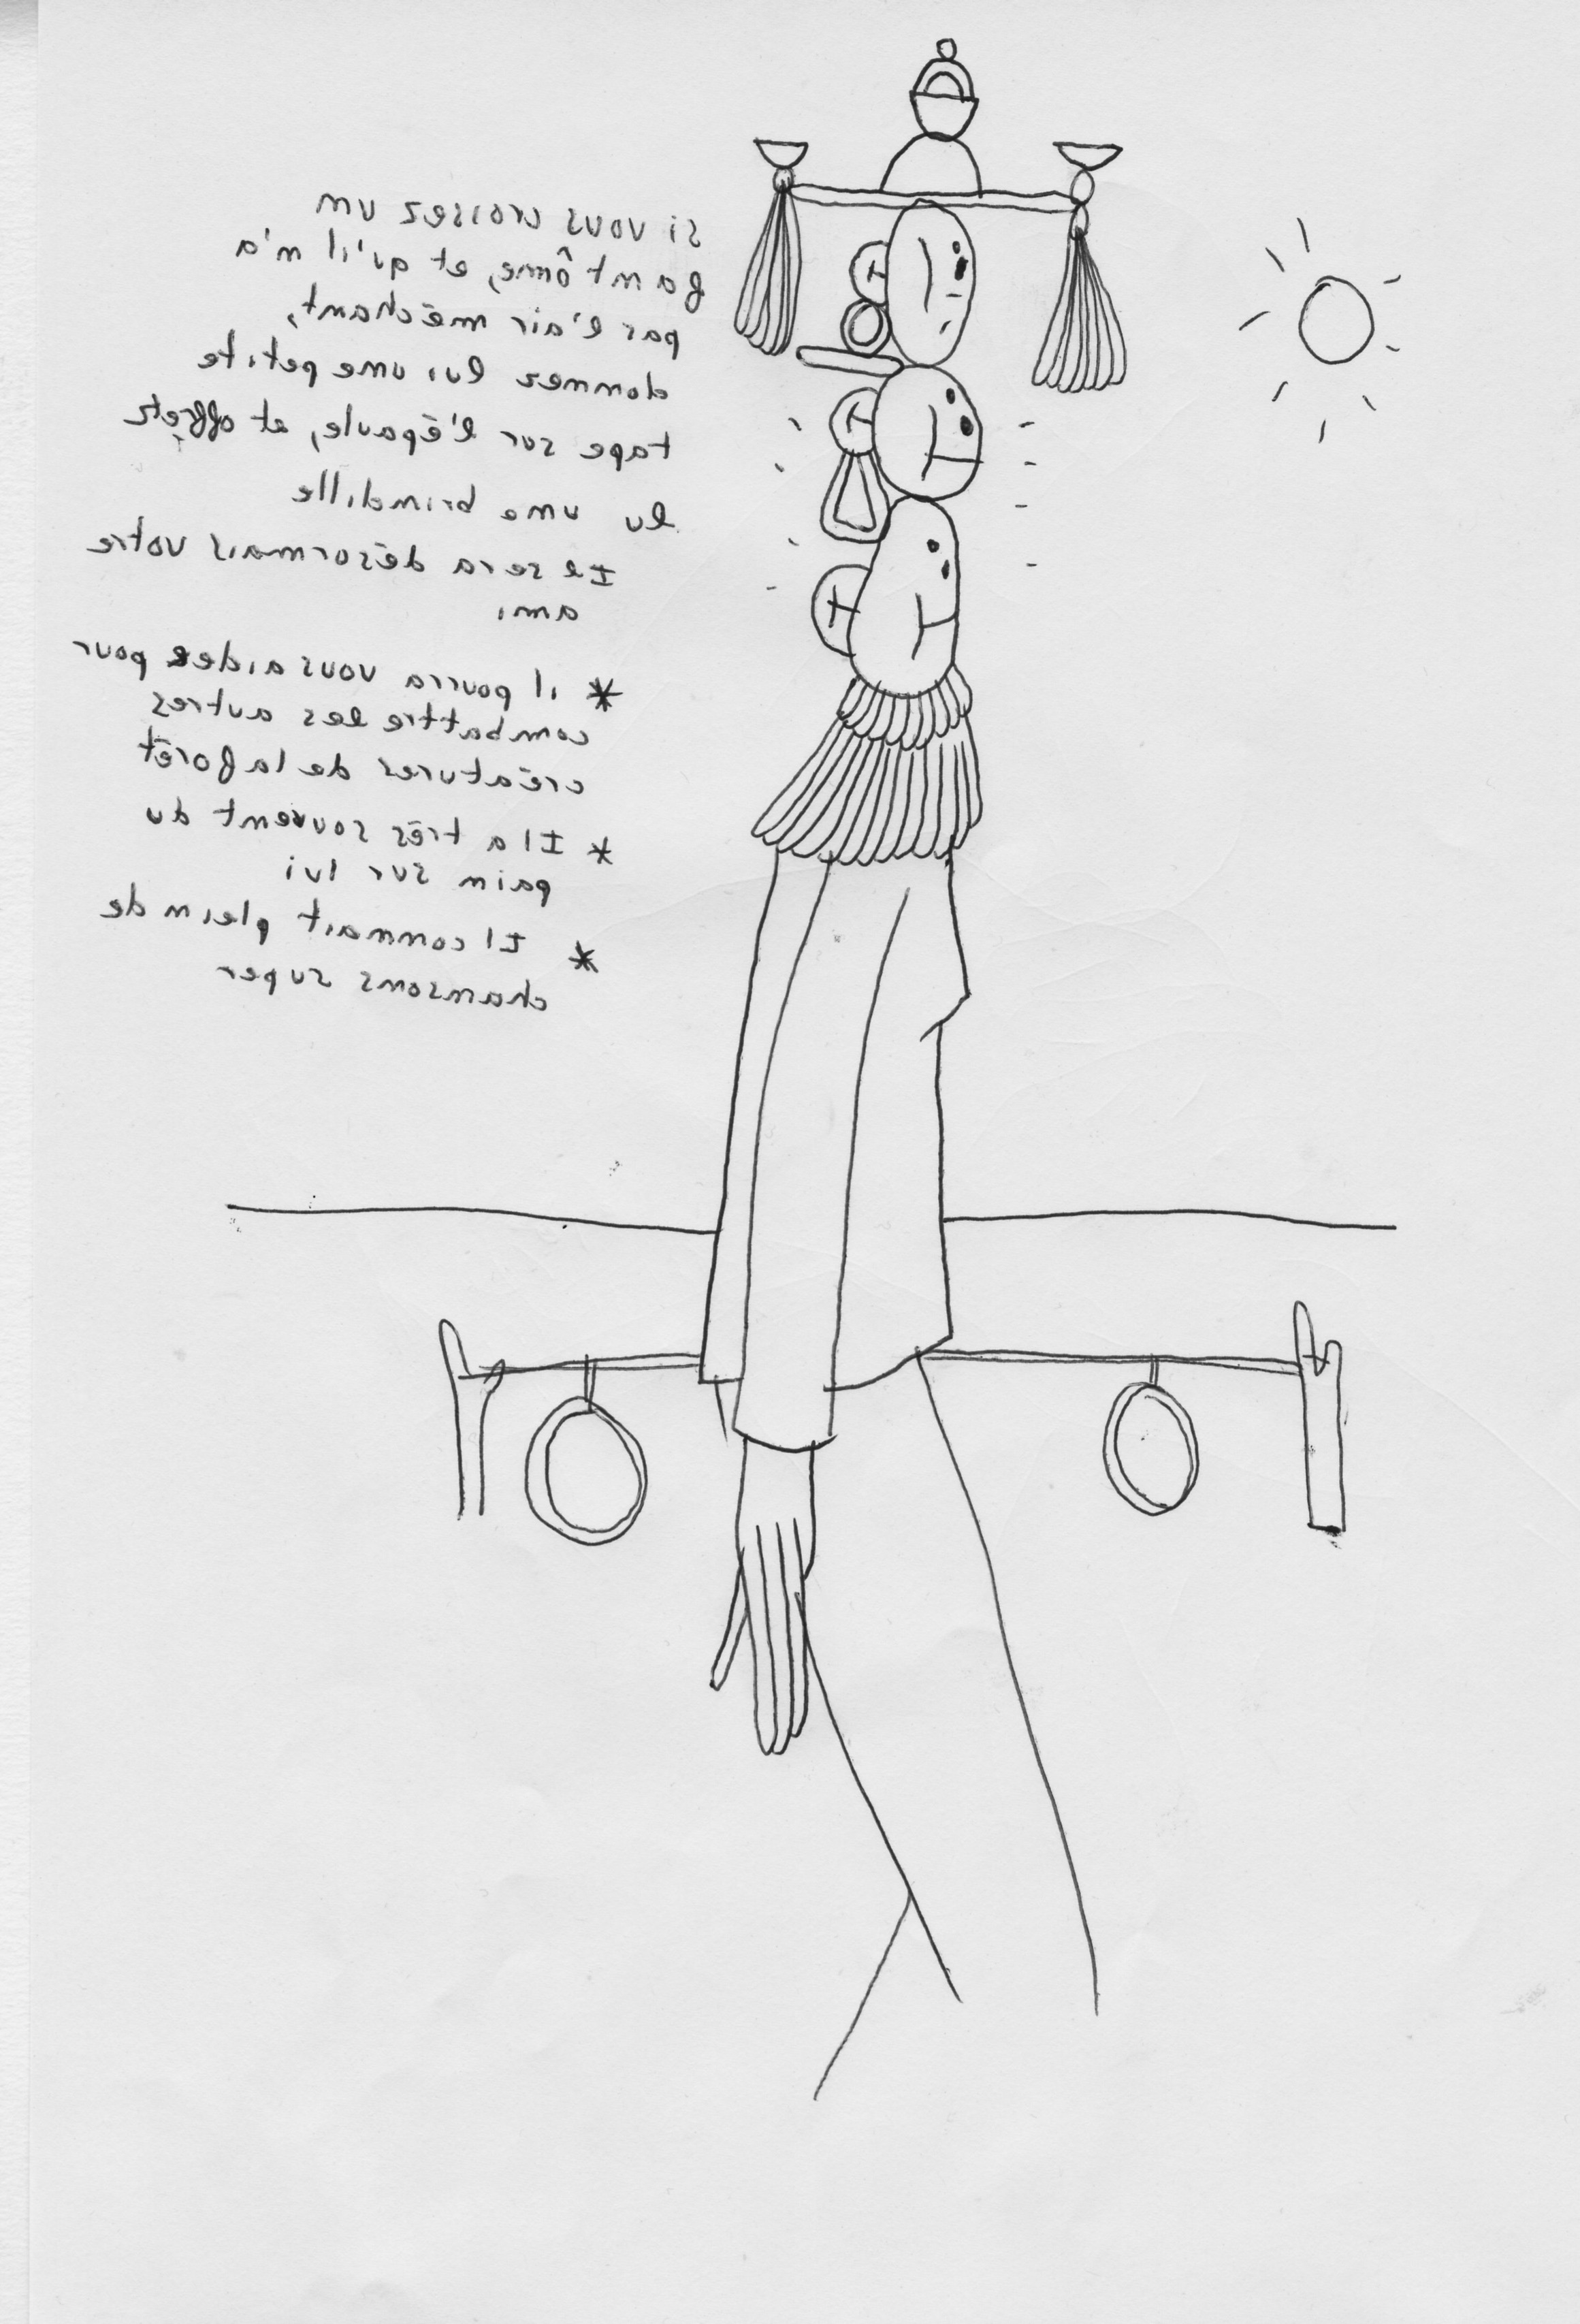 si vous croisez un
fantôme, et qu'il n'a
pas l'air méchant,
donner lui une petite
tape sur l'épaule, et offrez
lu une brindille
Il sera désormais votre
ami
* il pourra vous aider pour
combattre les autres
créatures de la forêt
* Il a très souvent du
pain sur lui
* Il connait plein de
chansons super